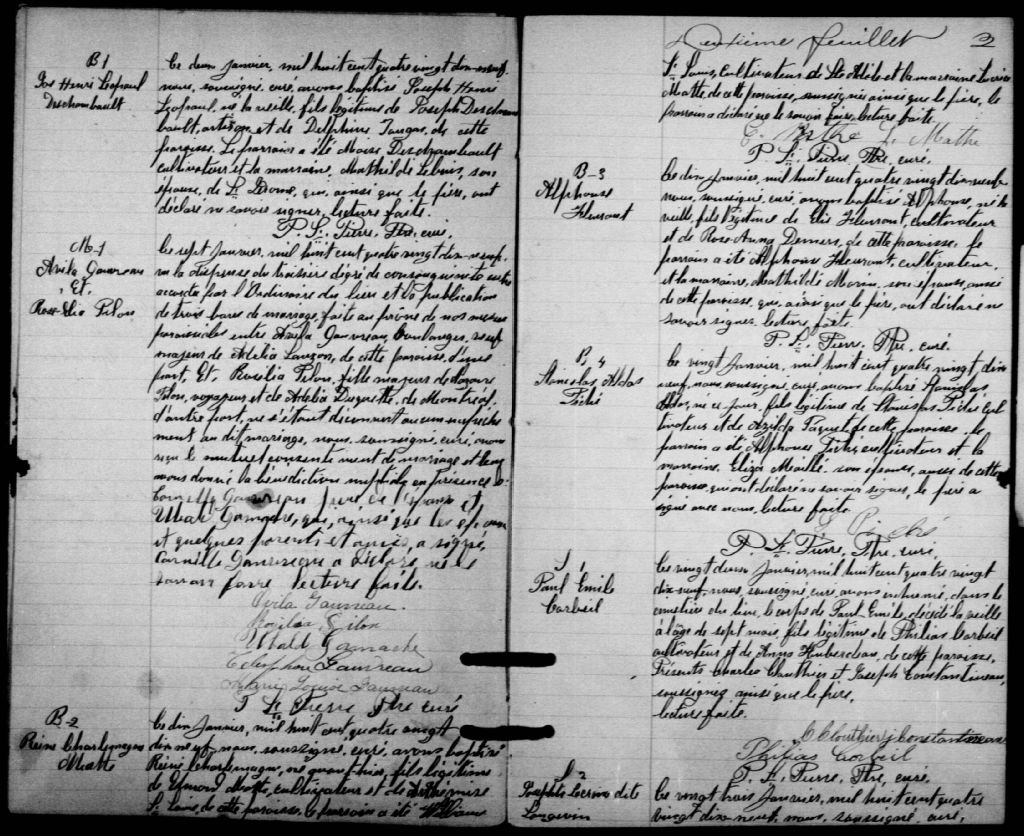 B 1
Jos Henri Leopaul
Deschambault
Le deux Janvier, mil huit cent quatre vingt dix-neuf
nous, soussigné, curé, avons baptisé Joseph Henri
Leopaul, né la veille, fils légitime de Joseph Descham
bault, artisan et de Delphine de cette
paroisse. Le parrain a été Moise Deschambault
cultivateur et la marraine, Mathilde son
épouse, de St qui, ainsi que le père, ont
déclaré ne savoir signer, lecture faite.
P. St. Pierre, Ptre, curé.
M-1
Avila Gauvreau
Et
Rose-Elia Pilon
Le sept Janvier, mil huit cent quatre vingt dix-neuf,
vu la dispense du troisième dégré de consanguinité
accordée par l'Ordinaire du lieu et la publication
de trois bans de mariage, faite au prône de nos messes
paroissiales entre Avila Gauvreau, Boulanger,
majeur de Adélia Lauzon, de cette paroisse, d'une
part, Et, Rosilia Pilon, fille majeure de
Pilon, voyageur et de Adélia Duquette, de Montréal,
d'autre part, ne s'étant découvert aucun empêche
ment au dit mariage, nous, soussigné, curé, avons
reçu le mutuel consentement de mariage et leur
avons donné la bénédiction nuptiale en présence de
Camille Gauvreau père de l'époux et
Ubald Gamache, qui, ainsi que les époux
et quelques parents et amis, a signé,
Camille Gauvreau a déclaré ne
savoir faire lecture faite.
Avila Gauvreau.
Rosilia Pilon
Ubald Gamache
Telesphore Gauvreau
Marie Louise Gauvreau
P. St. Pierre Ptre curé
B-2
Réné Charlemagne
Matte
Le dix Janvier, mil huit cent quatre vingt
dix neuf, nous, soussigné, curé, avons baptisé
Réné Charlemagne, né avant hier, fils légitime
de Edmond Matte, cultivateur et de Arthémise
St. Louis, de cette paroisse. Le parrain a été William
Deuxième feuillet 3
St. Louis, Cultivateur de Ste Adèle et la marraine
Matte, de cette paroisse, soussignée ainsi que le père, le
parrain a déclaré ne le savoir faire, lecture faite.
E. Mathe L. Mathe
P. St. Pierre, Ptre, curé.
B-3
Alphonse
Fleurant
Le dix Janvier, mil huit cent quatre vingt dix-neuf
nous, soussigné, curé, avons baptisé Alphonse, né la
veille, fils légitime de Elie Fleurant, cultivateur
et de Rose-Anna Demers, de cette paroisse. Le
parrain a été Alphonse Fleurant, cultivateur,
et la marraine, Mathilde Morin, son épouse, aussi
de cette paroisse, qui, ainsi que le père, ont déclaré ne
savoir signer, lecture faite.
P. St. Pierre, Ptre, curé.
B. 4
Stanislas Aldas
Piché
Le vingt Janvier, mil huit cent quatre vingt dix
neuf, nous, soussigné, curé, avons baptisé Stanislas
Aldas, né ce jour, fils légitime de Stanislas Piché cul
tivateur et de Azilda Paquet de cette paroisse. Le
parrain a été Alphonse Piché, cultivateur et la
marraine, Eliza Maillé, son épouse, aussi de cette
paroisse, qui ont déclaré ne savoir signer, le père a
signé avec nous, lecture faite.
S. Piché
P. St. Pierre, Ptre, curé
S 1
Paul Emile
Corbeil
Le vingt deux Janvier, mil huit cent quatre vingt
dix-neuf, nous, soussigné, curé, avons inhumé, dans le
cimetière du lieu, le corps de Paul Emile, décédé la veille
à l'âge de sept mois, fils légitime de Philias Corbeil
cultivateur et de Anna Huberdeau, de cette paroisse,
Présents Charles Clouthier et Joseph Constantineau,
soussignés ainsi que le père,
lecture faite.
C Clouthier j constantineau
Philias Corbeil
P. St. Pierre, Ptre, curé.
S 2
dite
Longevin
Le vingt trois Janvier, mil huit cent quatre
vingt dix-neuf, nous, soussigné, curé,